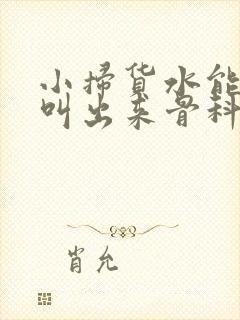 小掃货水能
叫出来骨科
肖允